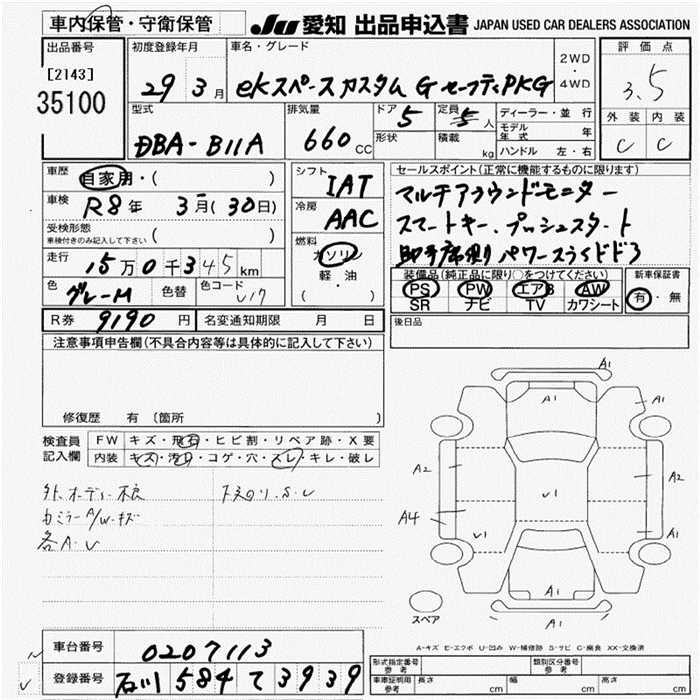 車内保管・守衛保管
JU 愛知 出品申込書 JAPAN USED CAR DEALERS ASSOCIATION
出品番号
[2143]
35100
初度登録年月
29 3月
車名・グレード
eKスペースカスタム G セーフティPKG
2WD
・
4WD
評価点
3.5
型式
DBA-B11A
排気量
660 cc
ドア
5
定員
人
形状
積載
kg
ディーラー・並行
モデル年式 年
ハンドル 左・右
外装 内装
C C
車歴
自家用・( )
車検
R8年 3月(30日)
受検形態
車検付きのみ記入して下さい ( )
走行
15万0千345km
色
グレーM
色替
色コード
U17
シフト
IAT
冷房
AAC
燃料
ガソリン
軽・油
( )
セールスポイント(正常に機能するものに限ります)
マルチアラウンドモニター
スマートキー、プッシュスタート
助手席側パワースライドドア
装備品(純正品に限り○をつけてください)
PS PW エアB AW
SR ナビ TV カワシート
新車保証書
有・無
R券 9190円
名変通知期限 月 日
後日品
注意事項申告欄(不具合内容等は具体的に記入して下さい)
修復歴 有 (箇所 )
検査員記入欄
FW キズ・飛石・ヒビ割・リペア跡・X要
内装 キズ・汚れ・コゲ・穴・スレ・キレ・破レ
各A・U
A1
A1
A1
A1
A2
A2
U1
A4
U1
A1
A1
A1
A1
スペア
A-キズ E-エクボ U-凹み W-補修跡 S-サビ C-腐食 XX-交換済
車台番号
0207113
登録番号
石川 584 て 3939
形式指定番号 参考
類別区分番号 参考
車庫証明用 参考
長さ cm 幅 cm 高さ cm